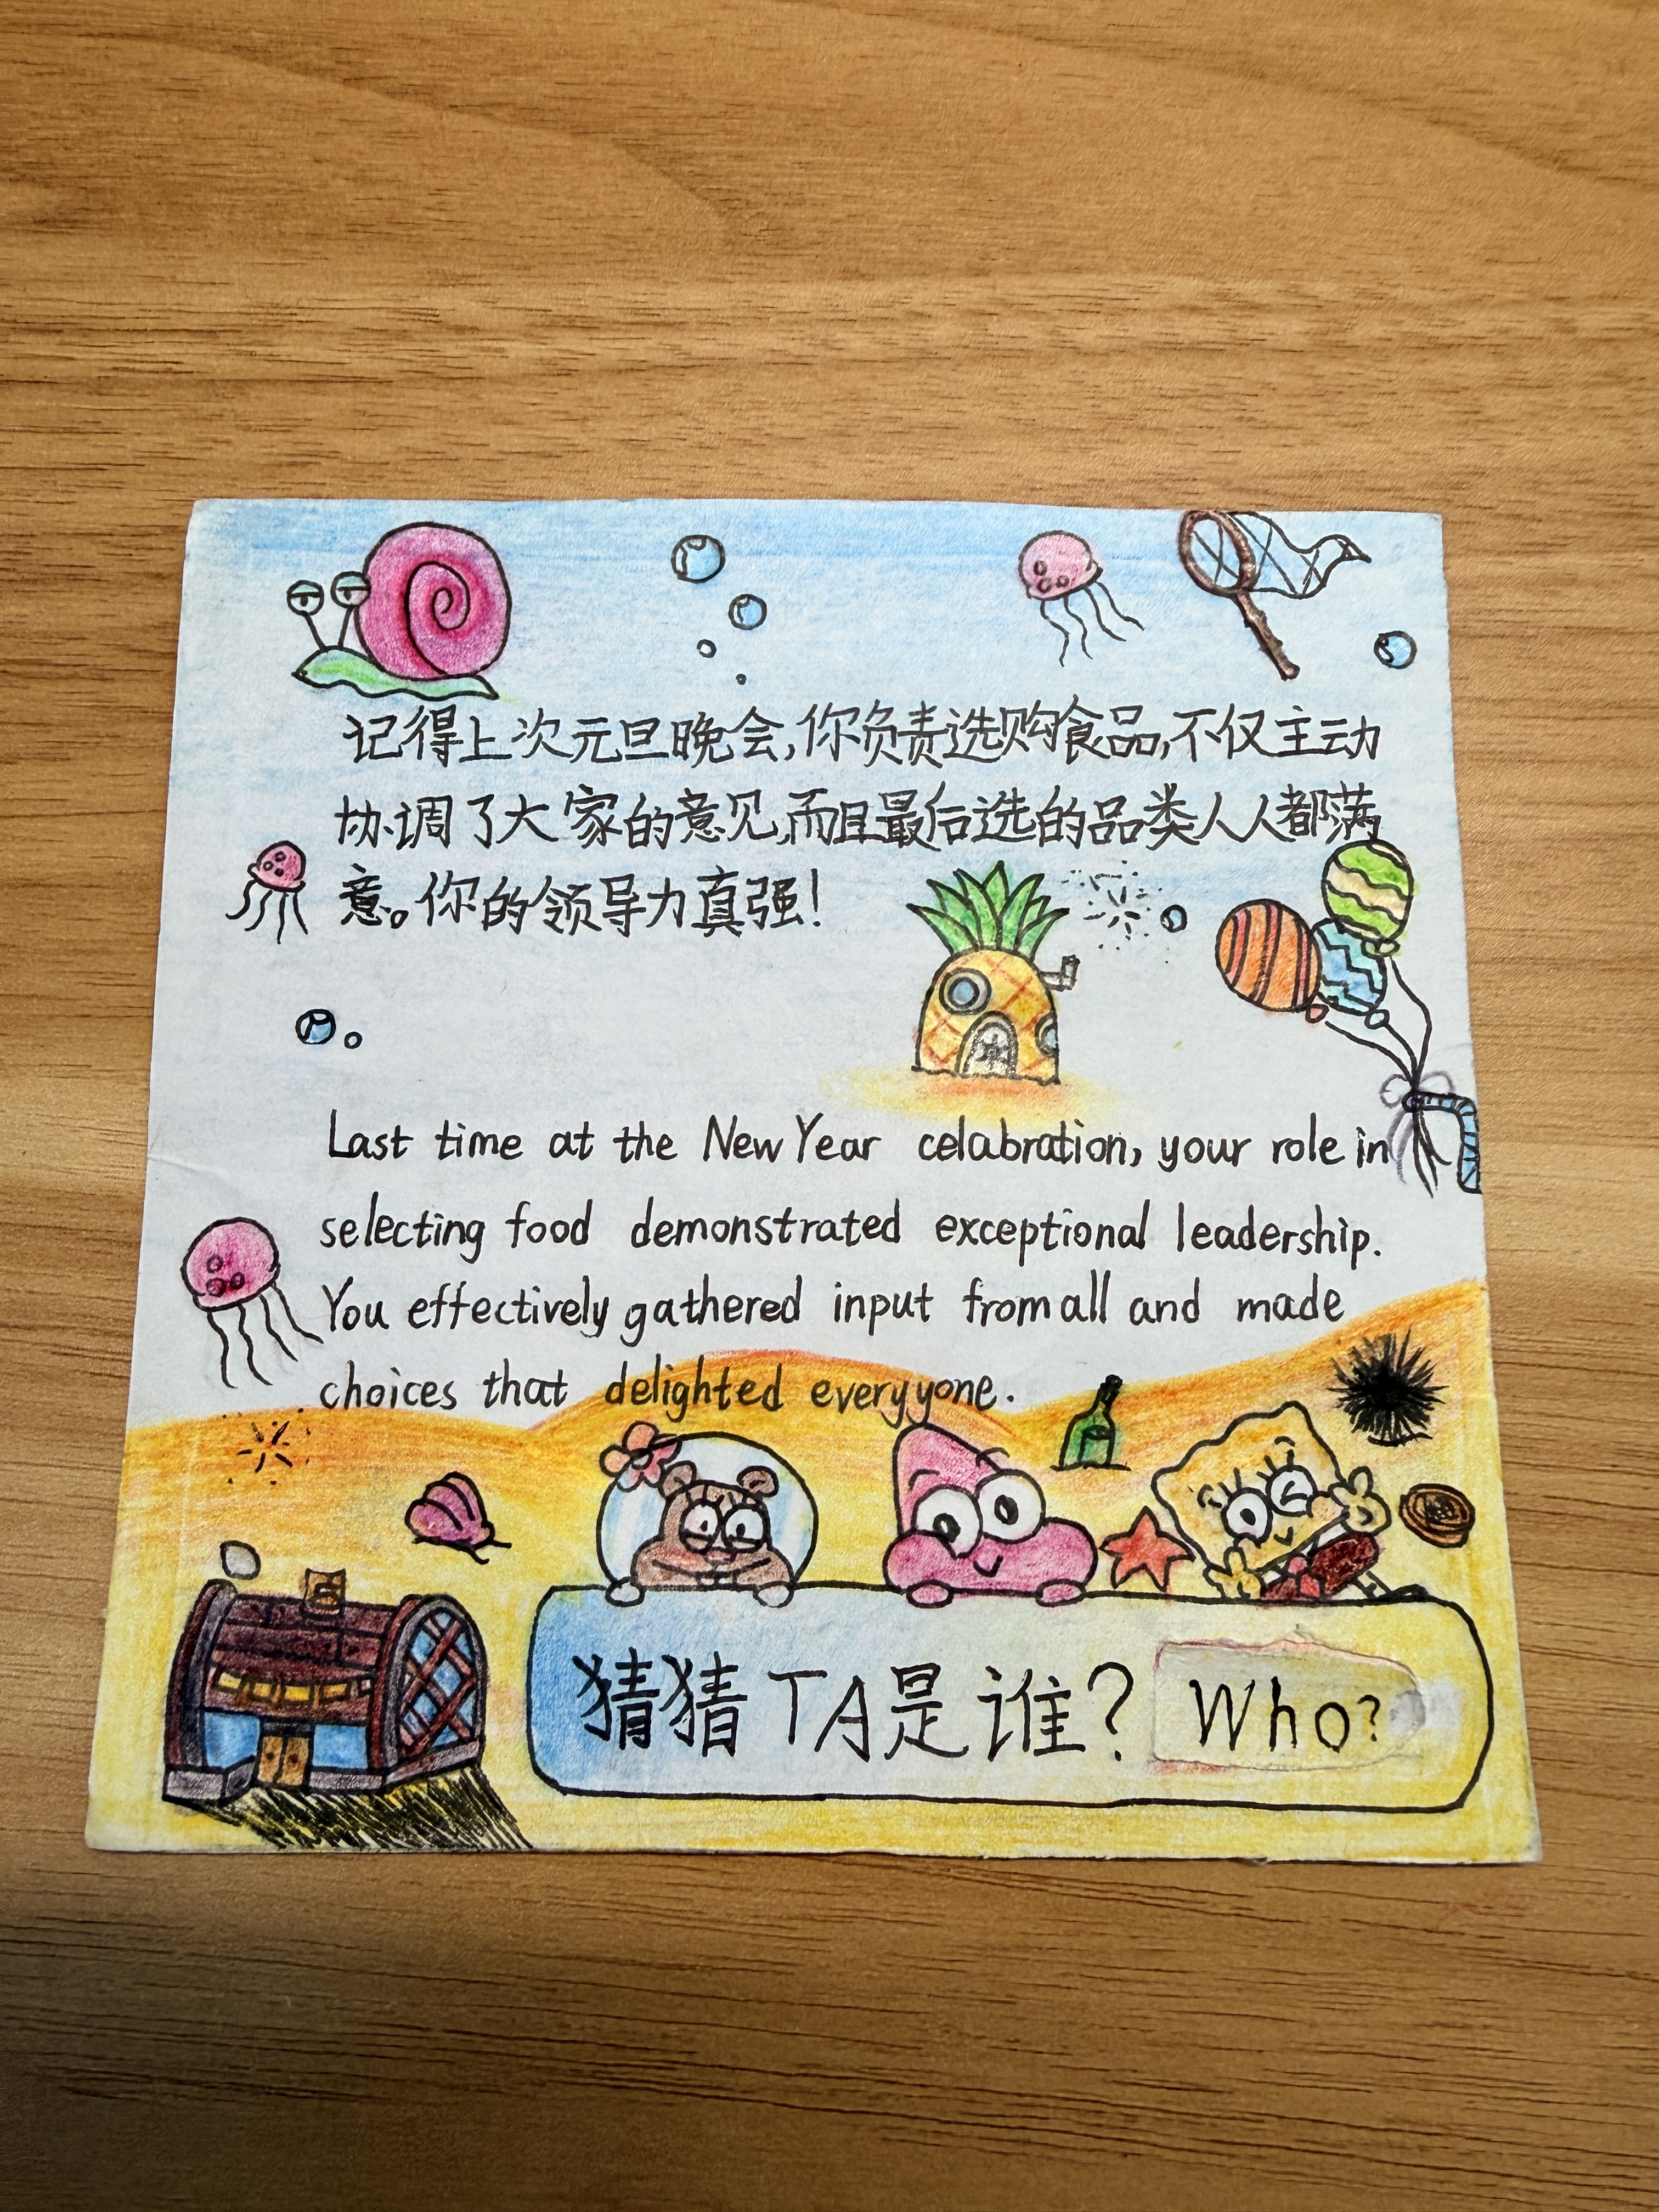 记得上次元旦晚会,你负责选购食品,不仅主动
协调了大家的意见,而且最后选的品类人人都满
意。你的领导力真强!
Last time at the New Year celabration, your role in
selecting food demonstrated exceptional leadership.
You effectively gathered input from all and made
choices that delighted everyyone.
猜猜TA是谁? Who?